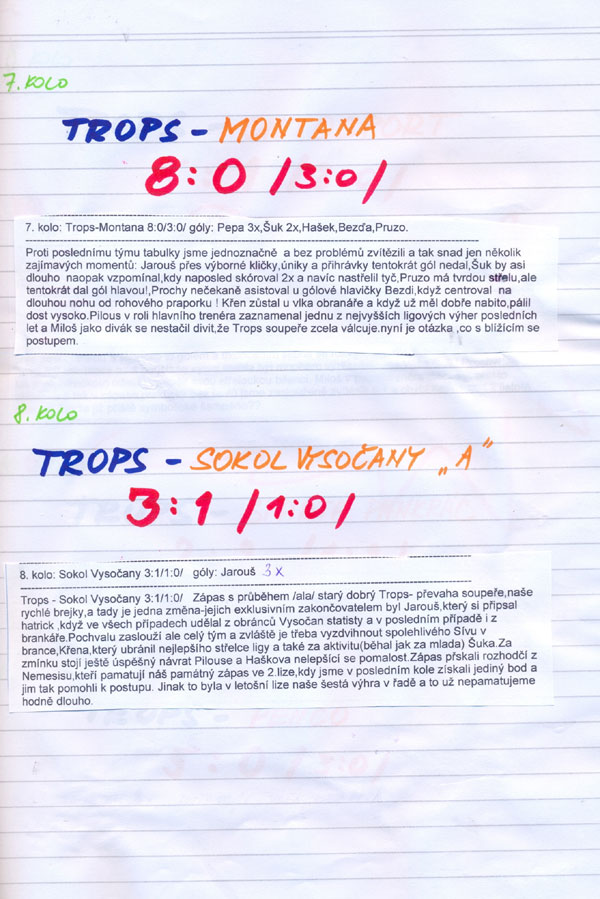 7. KOLO
TROPS - MONTANA
8:0 /3:0/
7. kolo: Trops-Montana 8:0/3:0/ góly: Pepa 3x,Šuk 2x,Hašek,Bezďa,Pruzo.
Proti poslednímu týmu tabulky jsme jednoznačně a bez problémů zvítězili a tak snad jen několik
zajímavých momentů: Jarouš přes výborné kličky,úniky a přihrávky tentokrát gól nedal,Šuk by asi
dlouho naopak vzpomínal,kdy naposled skóroval 2x a navíc nastřelil tyč,Pruzo má tvrdou střelu,ale
tentokrát dal gól hlavou!,Prochy nečekaně asistoval u gólové hlavičky Bezdi,když centroval na
dlouhou nohu od rohového praporku ! Křen zůstal u vlka obranáře a když už měl dobře nabito,pálil
dost vysoko.Pilous v roli hlavního trenéra zaznamenal jednu z nejvyšších ligových výher posledních
let a Miloš jako divák se nestačil divit,že Trops soupeře zcela válcuje.nyní je otázka ,co s blížícím se
postupem.
8. KOLO
TROPS - SOKOL VYSOČANY „A"
3:1 /1:0/
8. kolo: Sokol Vysočany 3:1/1:0/ góly: Jarouš 3x
Trops - Sokol Vysočany 3:1/1:0/ Zápas s průběhem /ala/ starý dobrý Trops- převaha soupeře,naše
rychlé brejky,a tady je jedna změna-jejich exklusivním zakončovatelem byl Jarouš,který si připsal
hatrick ,když ve všech případech udělal z obránců Vysočan statisty a v posledním případě i z
brankáře.Pochvalu zaslouží ale celý tým a zvláště je třeba vyzdvihnout spolehlivého Sívu v
brance,Křena,který ubránil nejlepšího střelce ligy a také za aktivitu(běhal jak za mlada) Šuka.Za
zmínku stojí ještě úspěšný návrat Pilouse a Haškova nelepšící se pomalost.Zápas přskali rozhodčí z
Nemesisu,kteří pamatují náš památný zápas ve 2.lize,kdy jsme v posledním kole získali jediný bod a
jim tak pomohli k postupu. Jinak to byla v letošní lize naše šestá výhra v řadě a to už nepamatujeme
hodně dlouho.